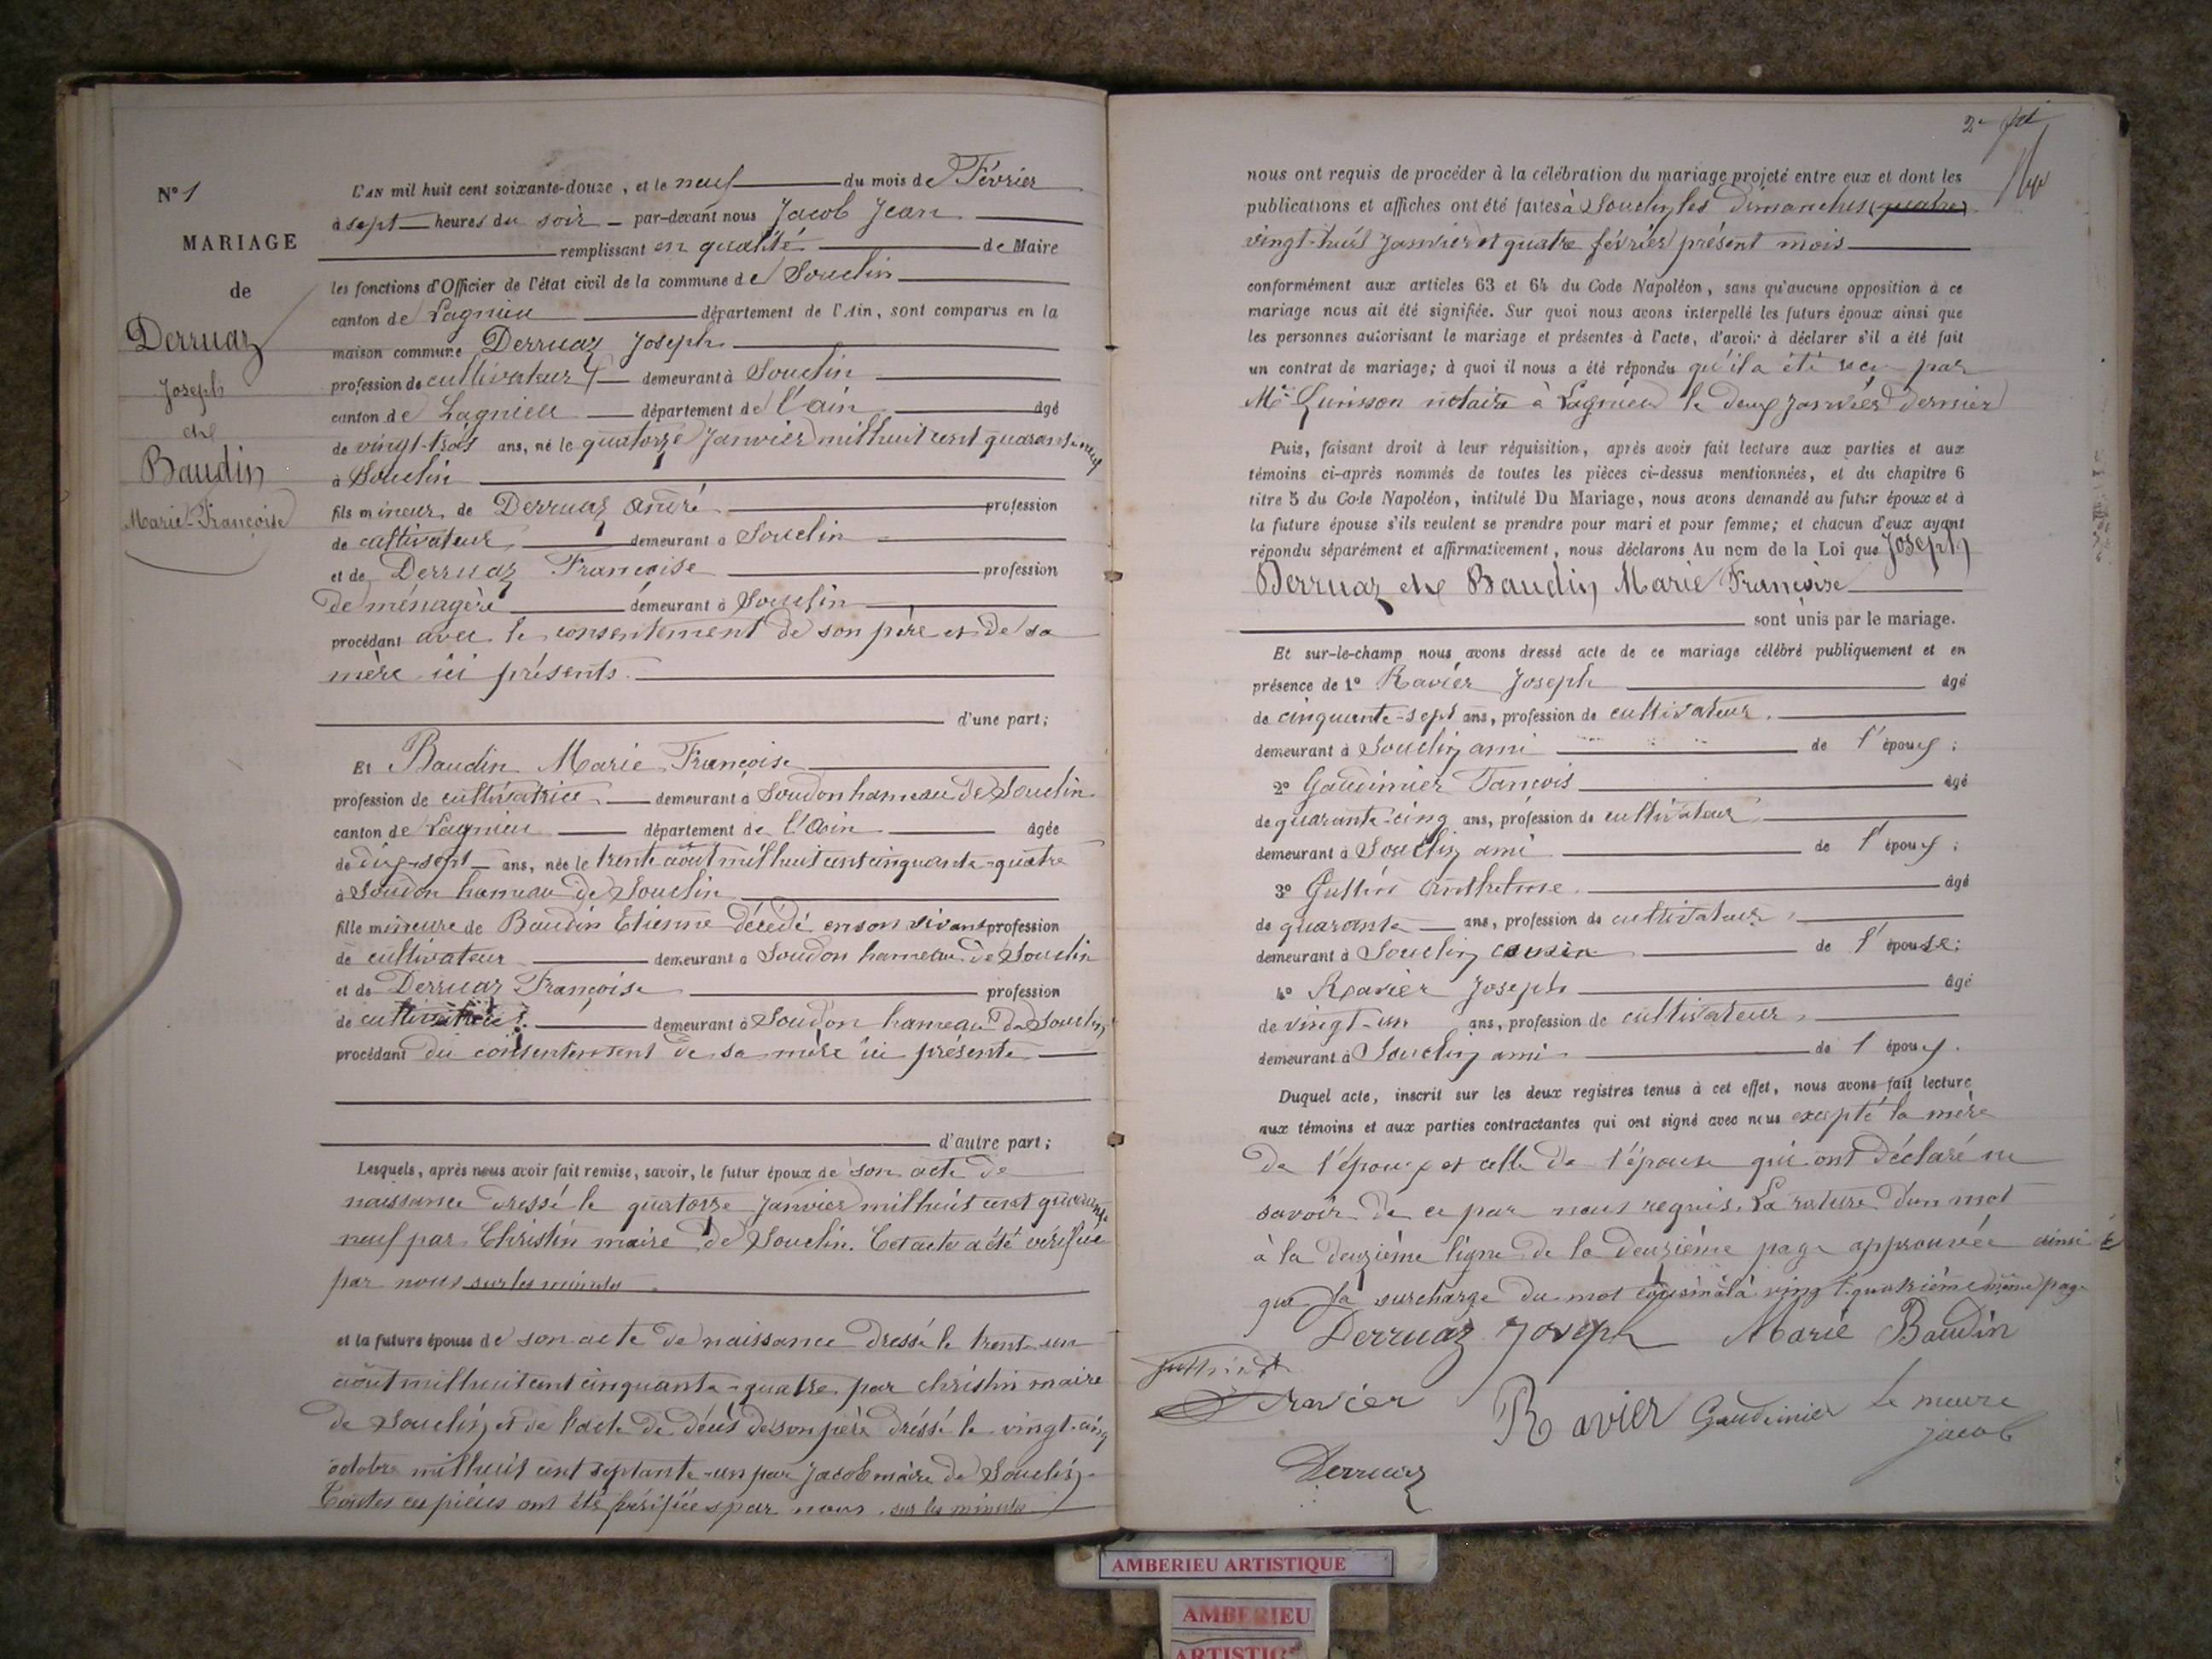 N° 1
MARIAGE
de
Derruaz
Joseph
et
Baudin
Marie-Françoise
L'AN mil huit cent soixante-douze, et le neuf du mois de Février
à sept heures du soir par-devant nous Jacob Jean
remplissant en qualité de Maire
les fonctions d'Officier de l'état civil de la commune de Souclin
canton de Lagnieu département de l'Ain, sont comparus en la
maison commune Derruaz Joseph
profession de cultivateur demeurant à Souclin
canton de Lagnieu département de l'ain âgé
de vingt-trois ans, né le quatorze Janvier mil huit cent quarante neuf
à Souclin
fils mineur de Derruaz André profession
de cultivateur demeurant à Souclin
et de Derruaz Françoise profession
de ménagère demeurant à Souclin
procédant avec le consentement de son père et de sa
mère ici présents
d'une part;
Et Baudin Marie Françoise
profession de cultivatrice demeurant à Soudon hameau de Souclin
canton de Lagnieu département de l'Ain âgée
de dix-sept ans, née le trente août mil huit cent cinquante-quatre
à Soudon hameau de Souclin
fille mineure de Baudin Etienne décédé en son vivant profession
de cultivateur demeurant à Soudon hameau de Souclin
et de Derruaz Françoise profession
de cultivatrice demeurant à Soudon hameau de Souclin
procédant du consentement de sa mère ici présente
d'autre part;
Lesquels, après nous avoir fait remise, savoir, le futur époux de son acte de
naissance dressé le quatorze Janvier mil huit cent quarante
neuf par Christin maire de Souclin. Cet acte a été vérifié
par nous sur les minutes
et la future épouse de son acte de naissance dressé le trente-un
août mil huit cent cinquante-quatre par christin maire
de Souclin et de l'acte de décès de son père dréssé le vingt-cinq
octobre mil huit cent septante-un par Jacob maire de Souclin.
Toutes ces pièces ont été vérifiées par nous sur les minutes
2e
nous ont requis de procéder à la célébration du mariage projeté entre eux et dont les
publications et affiches ont été faites à Souclin les dimanches quatre
vingt-huit Janvier et quatre février présent mois
conformément aux articles 63 et 64 du Code Napoléon, sans qu'aucune opposition à ce
mariage nous ait été signifiée. Sur quoi nous avons interpellé les futurs époux ainsi que
les personnes autorisant le mariage et présentes à l'acte, d'avoir à déclarer s'il a été fait
un contrat de mariage; à quoi il nous a été répondu qu'il a été reçu par
Me notaire à Lagnieu le deux Janvier dernier
Puis, faisant droit à leur réquisition, après avoir fait lecture aux parties et aux
témoins ci-après nommés de toutes les pièces ci-dessus mentionnées, et du chapitre 6
titre 5 du Code Napoléon, intitulé Du Mariage, nous avons demandé au futur époux et à
la future épouse s'ils veulent se prendre pour mari et pour femme; et chacun d'eux ayant
répondu séparément et affirmativement, nous déclarons Au nom de la Loi que Joseph
Derruaz et Baudin Marie Françoise
sont unis par le mariage.
Et sur-le-champ nous avons dressé acte de ce mariage célébré publiquement et en
présence de 1° Ravier Joseph âgé
de cinquante-sept ans, profession de cultivateur
demeurant à Souclin ami de l'époux;
2° Gaudinier Fancois âgé
de quarante-cinq ans, profession de cultivateur
demeurant à Souclin ami de l'époux;
3° Guttin Anthelme âgé
de quarante ans, profession de cultivateur
demeurant à Souclin cousin de l'épouse;
4° Ravier Joseph âgé
de vingt-un ans, profession de cultivateur
demeurant à Souclin ami de l époux.
Duquel acte, inscrit sur les deux registres tenus à cet effet, nous avons fait lecture
aux témoins et aux parties contractantes qui ont signé avec nous excepté la mère
de l'époux et celle de l'épouse qui ont déclaré ne
savoir de ce par nous requis. La rature d'un mot
à la deuxième ligne de la deuxième page approuvée ainsi
que la surcharge du mot cousin à la vingt-quatrième même page
Derruaz Joseph Marie Baudin
Ravier Ravier Gaudinier Le meure
jacob
Derruaz
AMBERIEU ARTISTIQUE
AMBERIEU
ARTISTIC